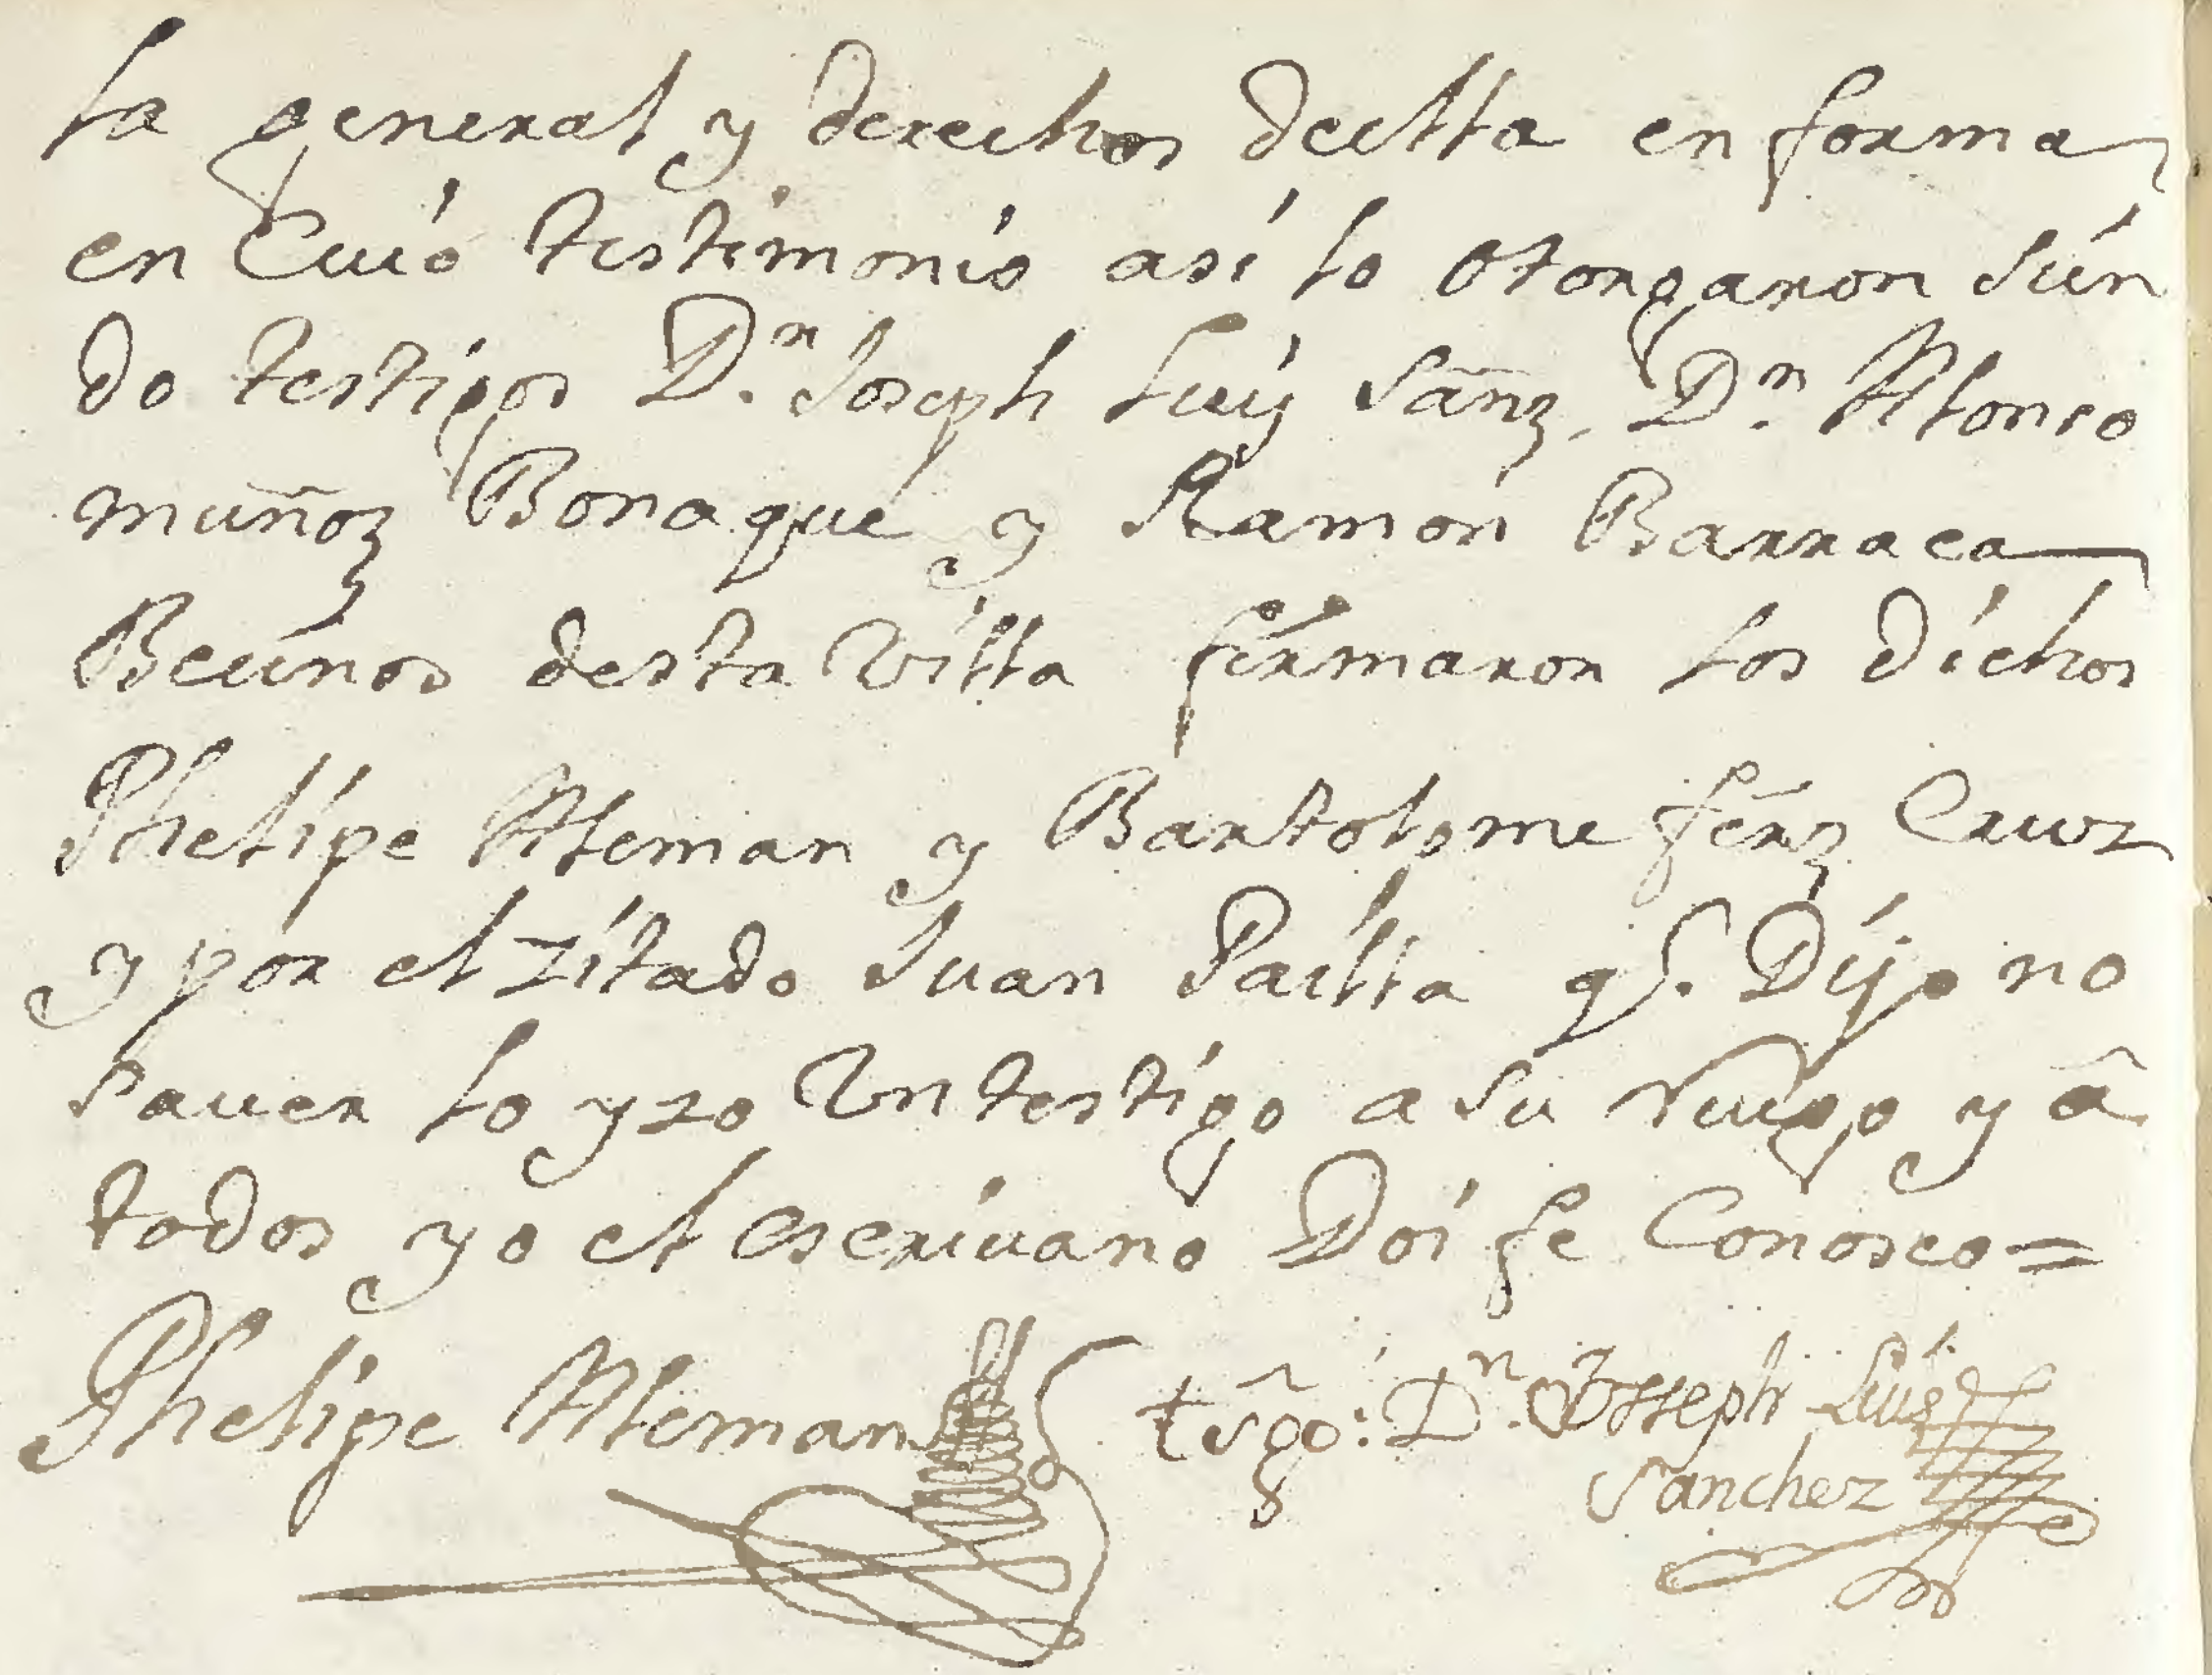 la general y derechos deella en forma
en Cuio testimonio asi lo otorgaron sien
do testigos D.n Joseph Luis Sanz, D.n Alonso
muñoz Bonaque y Ramon Barraca
Becinos desta Villa firmaron los dichos
Phelipe Aleman y Bartolome fern̄z Cruz
y por el zitado Juan Pailla q.e Dijo no
saver lo yzo Un testigo a su Ruego y â
todos yo el escriuano Doi fe Conosco=
Phelipe Aleman tsgo: D.n Joseph Luis
Sanchez